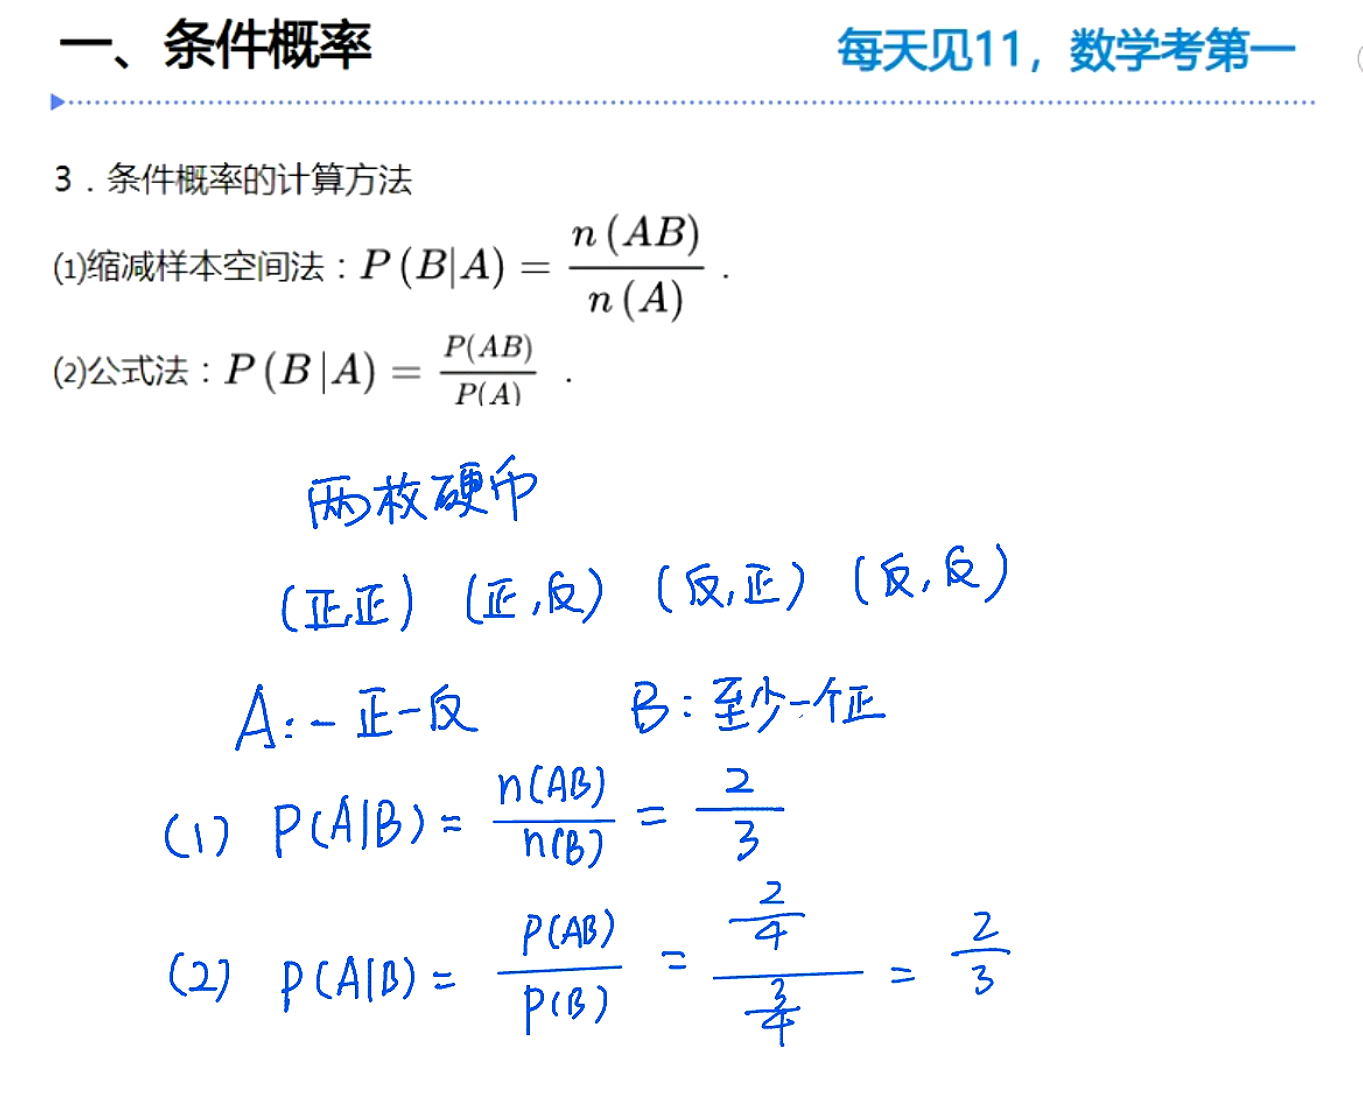 一、条件概率
每天见11，数学考第一
3．条件概率的计算方法
⑴缩减样本空间法：P(B|A) = n(AB)/n(A) .
⑵公式法：P(B|A) = P(AB)/P(A) .
两枚硬币
(正,正) (正,反) (反,正) (反,反)
A:一正一反 B:至少一个正
(1) P(A|B) = n(AB)/n(B) = 2/3
(2) P(A|B) = P(AB)/P(B) = (2/4)/(3/4) = 2/3